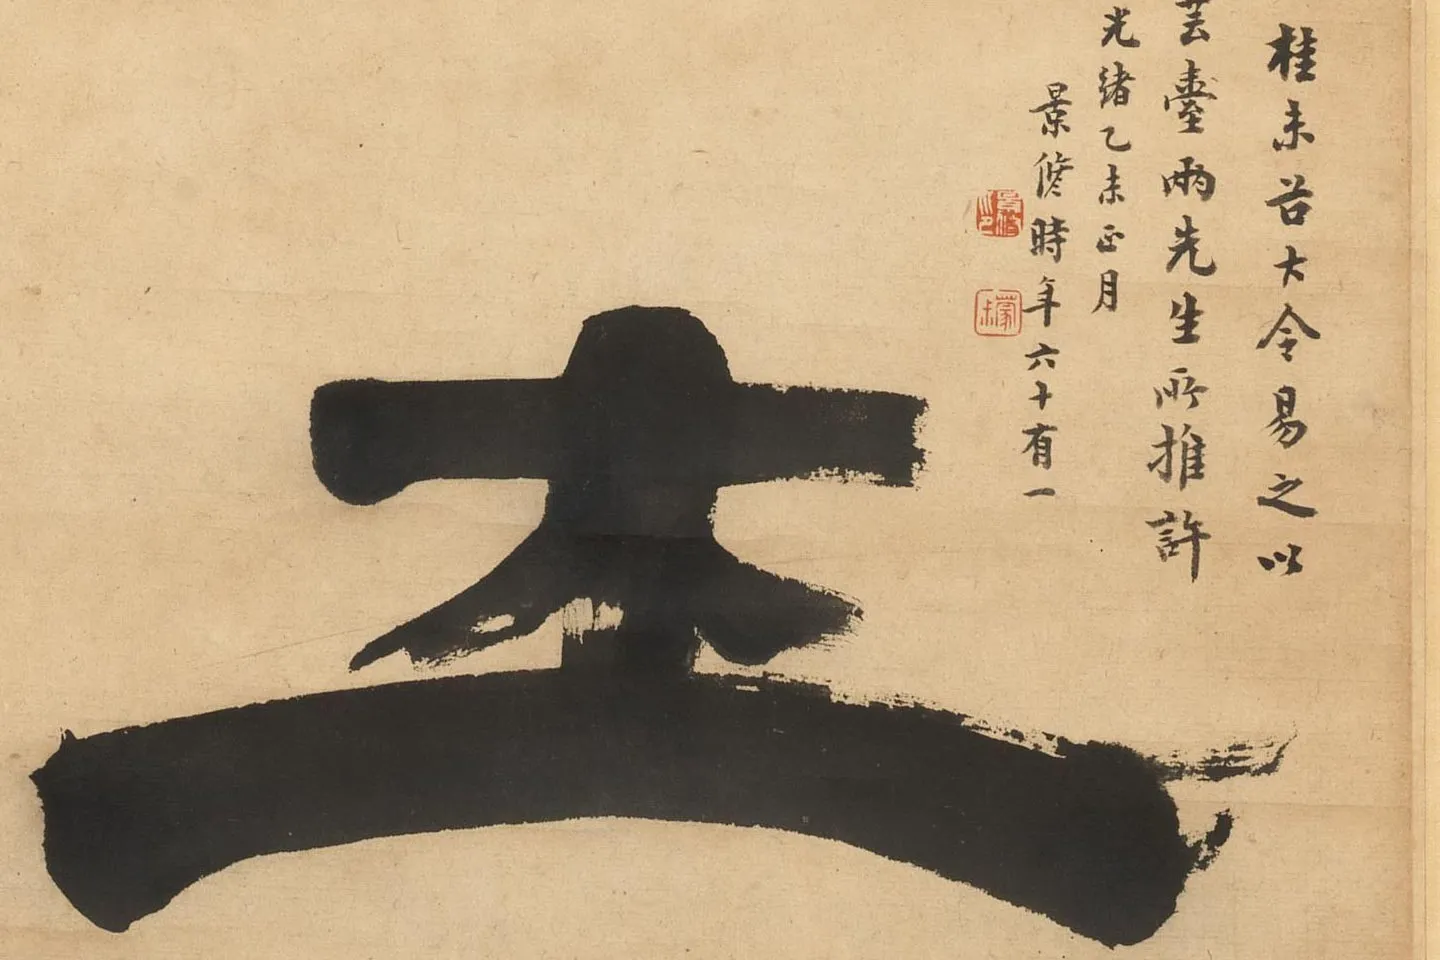 桂未谷大令易之以
芸臺兩先生所推許
光緒乙未正月
景修時年六十有一